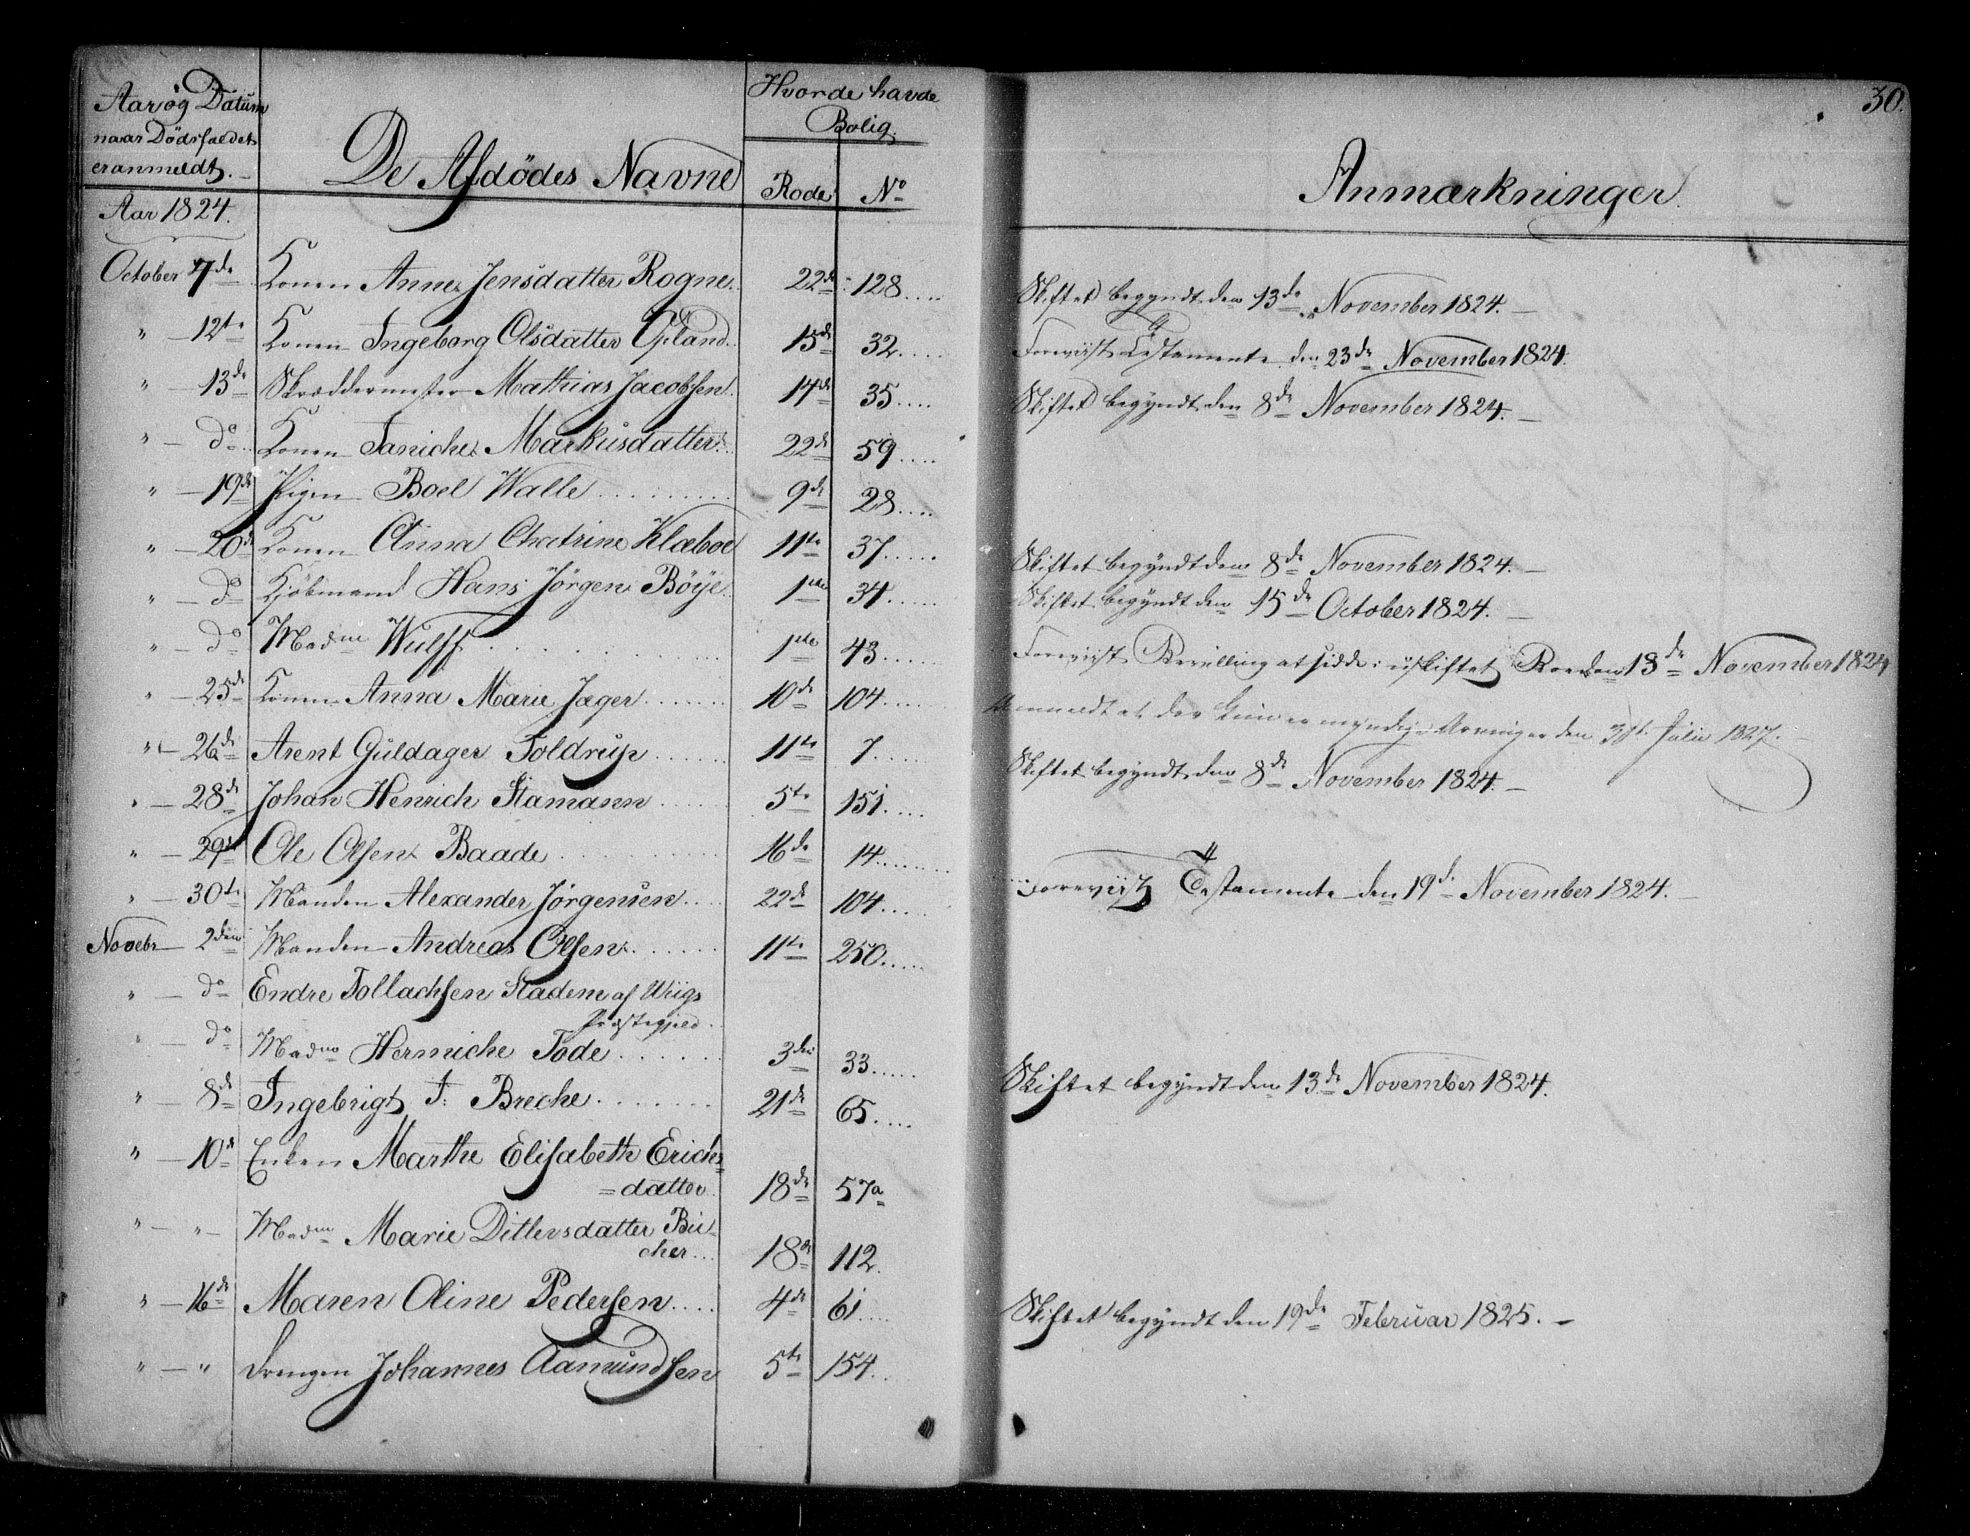 30.
Aar og Datum
naar Dødsfaldet
er anmeldt.
De Afdødes Navne
Hvor de havde
Bolig.
Rode No
Anmærkninger.
Aar 1824.
October 7de Konen Anne Jensdatter Rogne. 22de 128.... Skiftet begyndt den 13de November 1824.
" — 12te Konen Ingeborg Olsdatter 15de 32.... Foreviist Testamente den 23de November 1824.
" — 13de Skræddermester Mathias Jacobsen. 14de 35.... Skiftet begyndt den 8de November 1824.
" — do Konen Taniche Markusdatter. 22de 59....
" — 19de Pigen Boel Walle 9de 28....
" — 20de Konen Anna Chatrine Klæboe 11te 37..... Skiftet begyndt den 8de November 1824.
" — do Kjöbmand Hans Jörgen Böye. 1ste 34...... Skiftet begyndt den 15de October 1824.
" — do Madme Wulff 1ste 43...... Foreviist Bevilling at sidde i uskiftet Boe den 18de November 1824
" — 25de Konen Anna Marie Jæger 10de 104..... Anmeldt at der kun er myndige Arvinger den Julii 1827.
" — 26de Arent Guldager Toldrup 11te 7..... Skiftet begyndt den 8de November 1824.
" — 28de Johan Henrich Stamann 5te 151.....
" — 29de Ole Olsen Baade 16de 14......
" — 30te Manden Alexander Jörgensen 22de 104..... Foreviist Testamente den 19de November 1824.
Novebr 2den Manden Andreas Olsen 11te 250.....
" — do Endre Tollachsen Stadem af Wiigs
Præstegjeld.
" — do Madme Hermiche Tode 3die 33..... Skiftet begyndt den 13de November 1824.
" — 8de Ingebrigt J: Breche 21de 65....
" — 10de Enken Marthe Elisabeth Erichs=
=datter. 18de 57a
" — " Madme Marie Ditlevsdatter Bü-
cher... 18de 112.
" — 16de Maren Oline Pedersen.... 4de 61.... Skiftet begyndt den 19de Februar 1825.
" — " Drengen Johannes Aamundsen 5te 154..